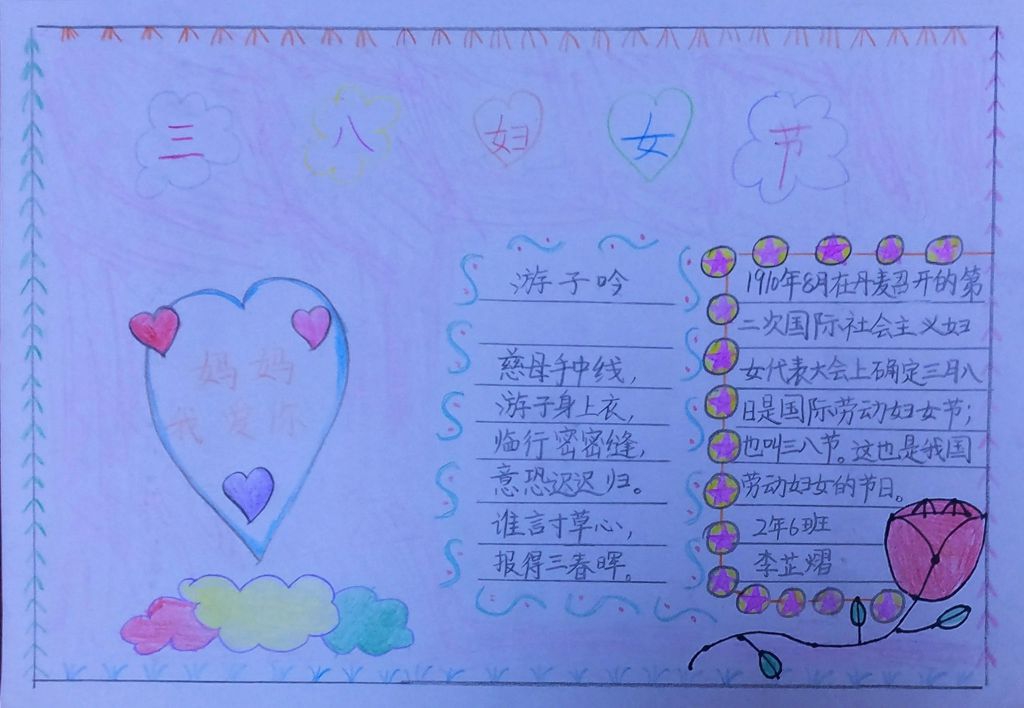 三八妇女节
妈妈
我爱你
游子吟
慈母手中线，
游子身上衣，
临行密密缝，
意恐迟迟归。
谁言寸草心，
报得三春晖。
1910年8月在丹麦召开的第
二次国际社会主义妇
女代表大会上确定三月八
日是国际劳动妇女节；
也叫三八节。这也是我国
劳动妇女的节日。
2年6班
李芷熠